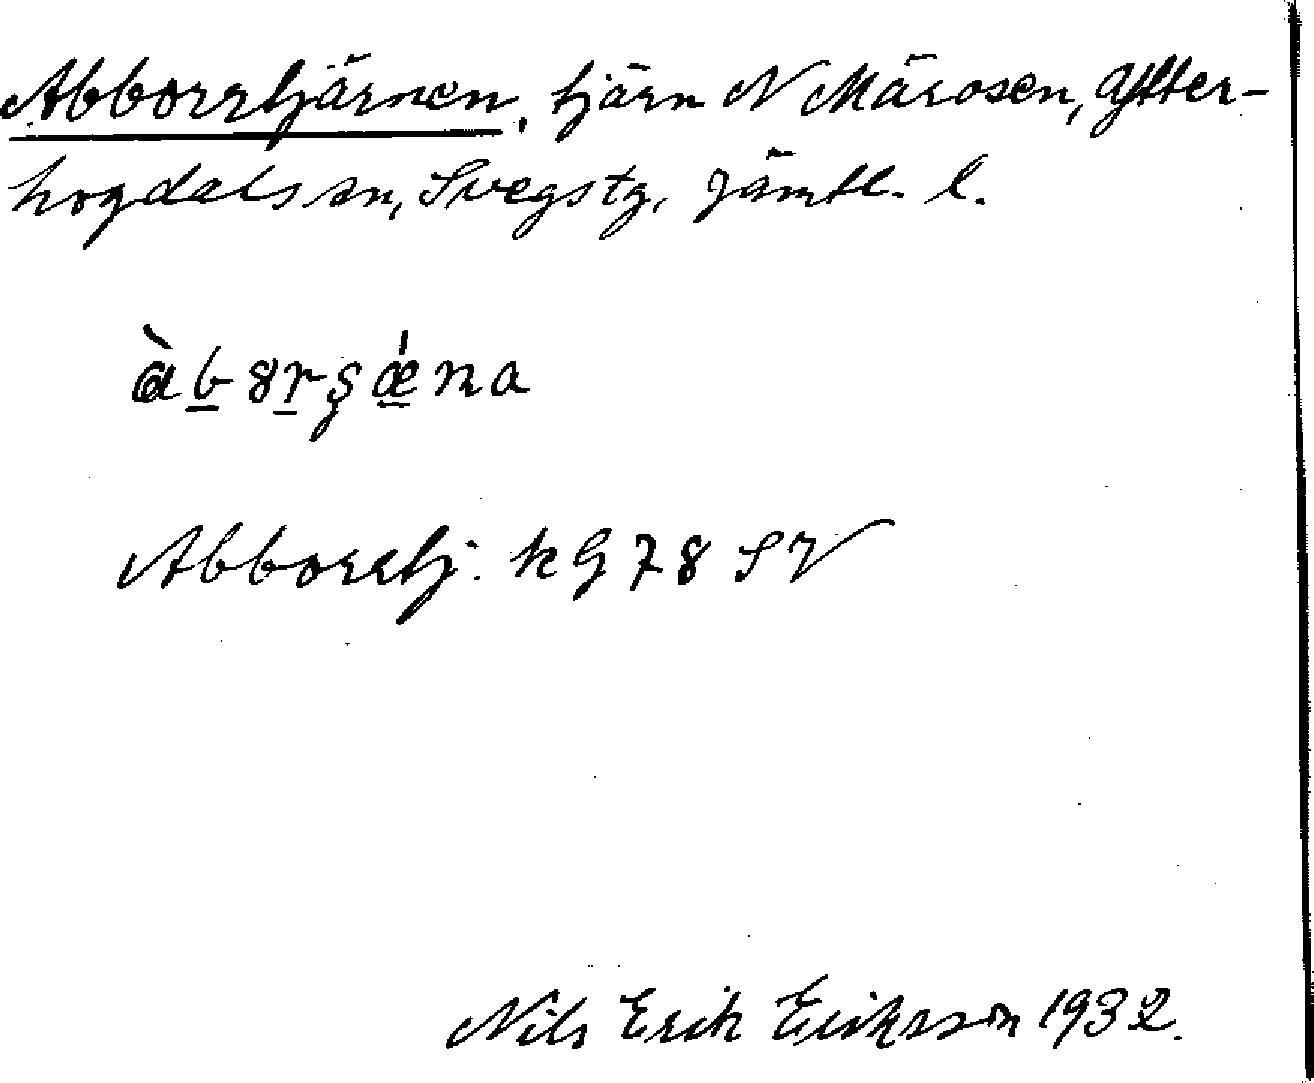 Abborrtjärnen, tjärn N Märosen, Ytter-
hogdals sn, Svegs tg, Jämtl. l.
àb8rʂǽna
Abborrtj: kG 78 SV
Nils Erik Eriksson 1932.